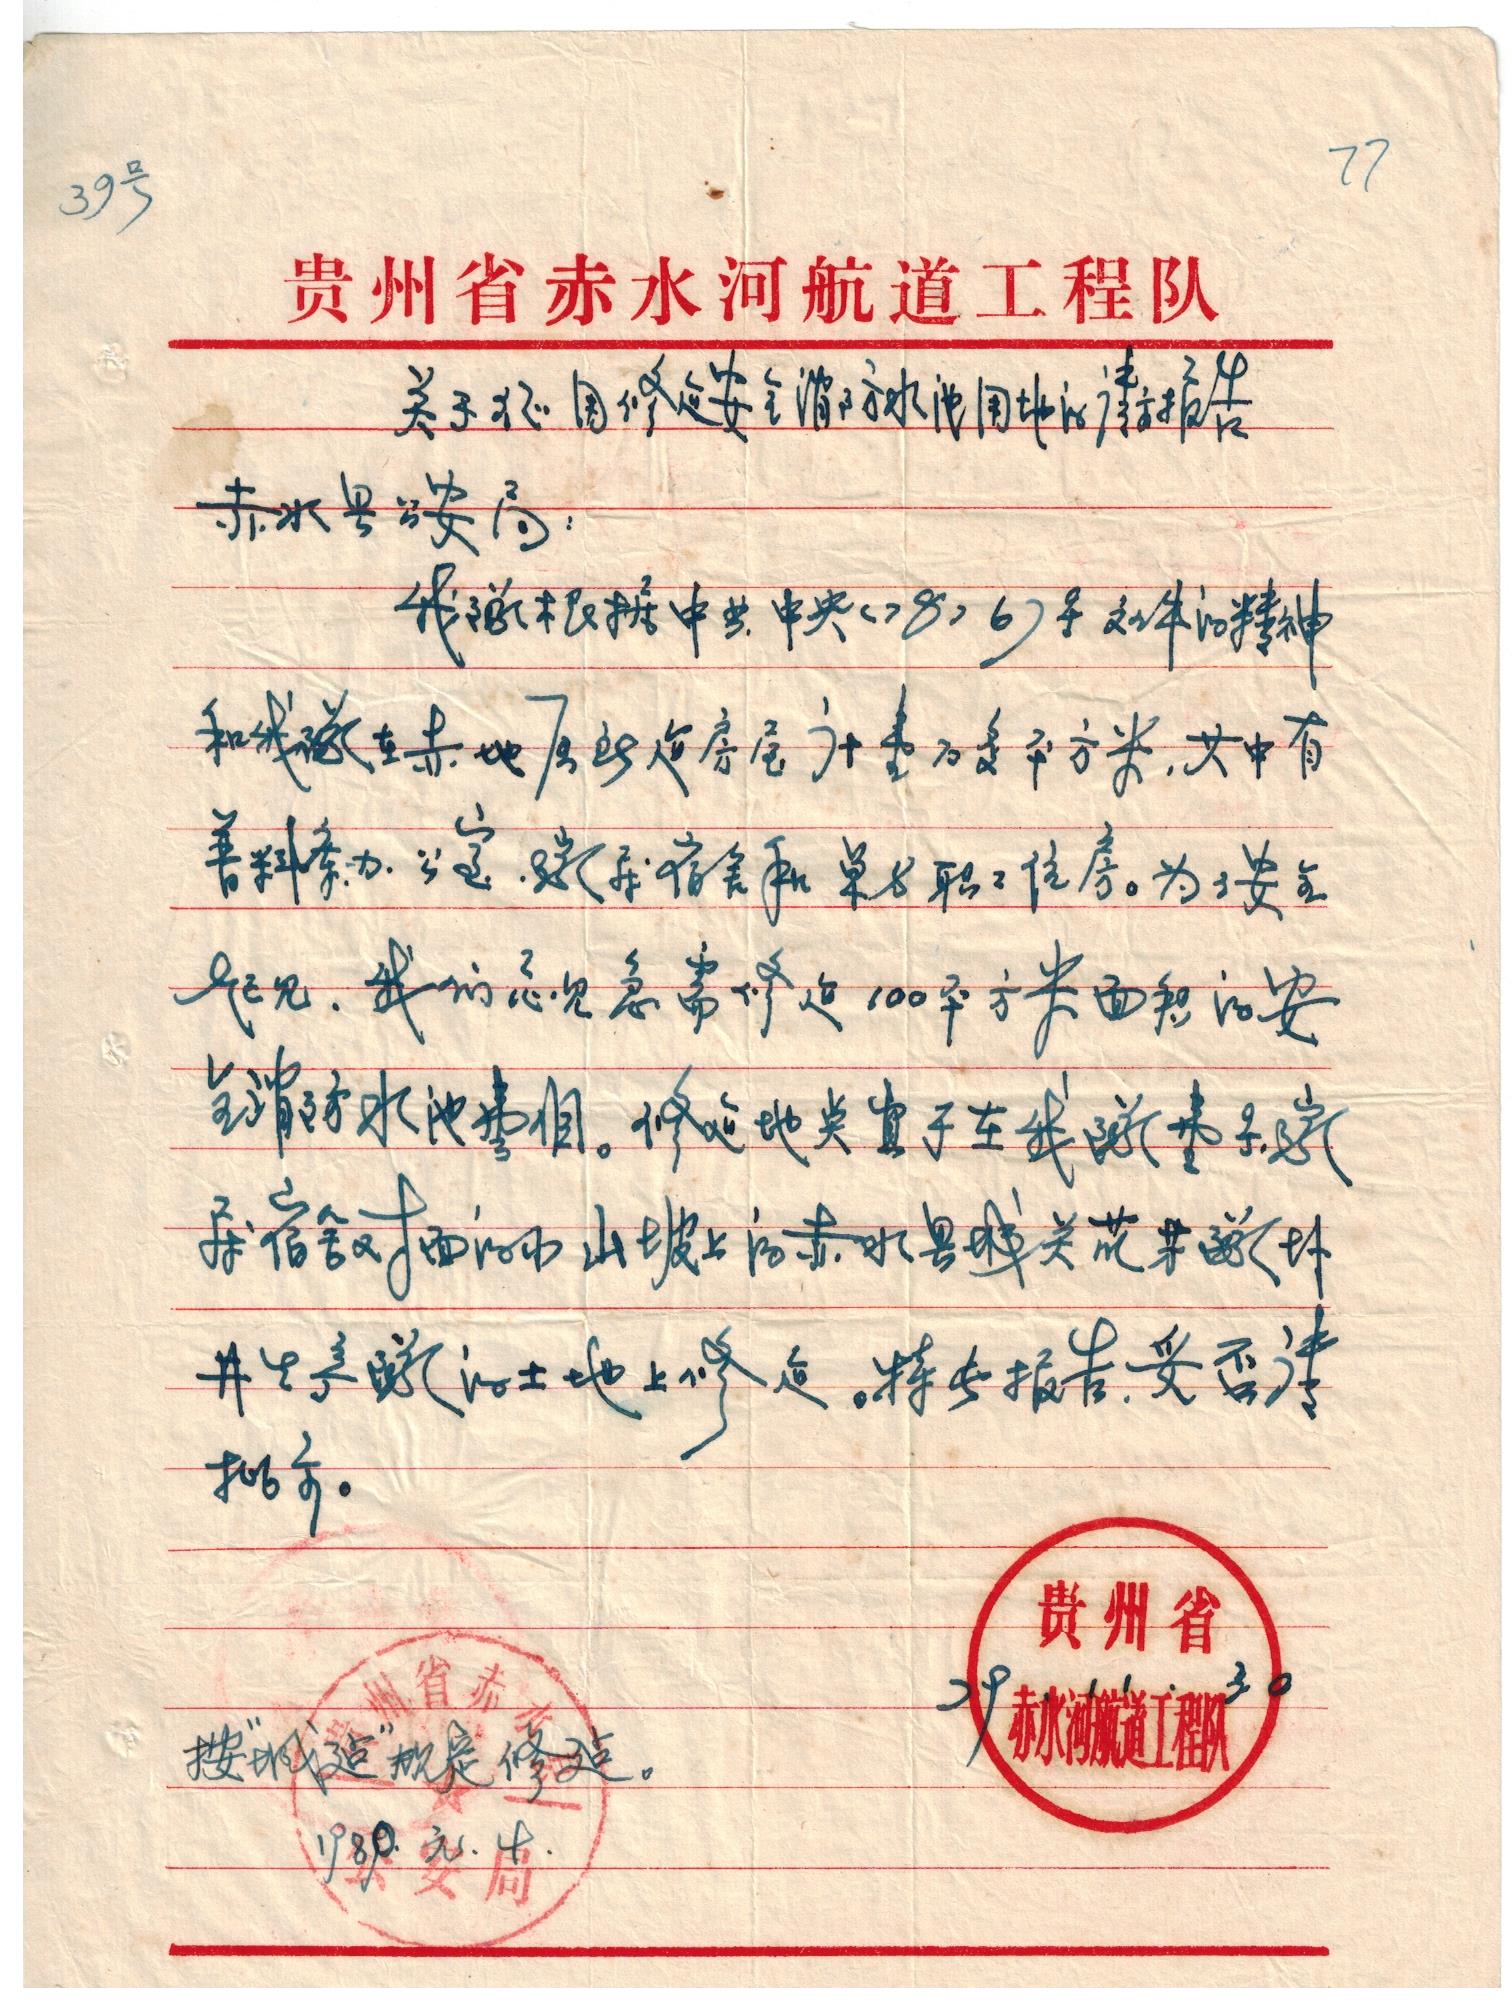 39号
77
贵州省赤水河航道工程队
关于征用修造安全消防水池用地的请示报告
赤水县公安局：
我队根据中共中央<78>67号文件的精神
和我队在赤地属新造房屋计壹万多平方米，其中有
普料库、办公室、家属宿舍和单身职工住房。为了安全
起见，我们意见急需修造100平方米面积的安
全消防水池壹个。修造地点宜于在我队壹号家
属宿舍对面的小山坡上的赤水县城关蔬菜队
井生产队的土地上修造。特此报告，妥否请
批示。
贵州省
79.11.30
赤水河航道工程队
贵州省赤水县
按“城建”规定修造。
1980.元.4.
公安局